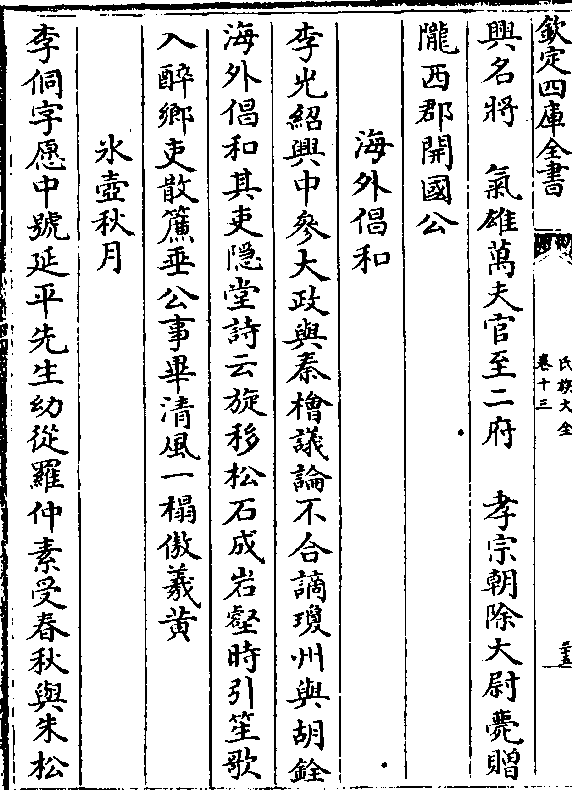 欽定四庫全書
氏族大全
卷十三
三十五
興名將　氣雄萬夫官至二府　孝宗朝除大尉薨贈
隴西郡開國公
海外倡和
李光紹興中參大政與秦檜議論不合謫瓊州與胡銓
海外倡和其吏隱堂詩云旋移松石成岩壑時引笙歌
入醉鄉吏散簾垂公事畢清風一榻傲羲黄
氷壺秋月
李侗字愿中號延平先生幼從羅仲素受春秋與朱松